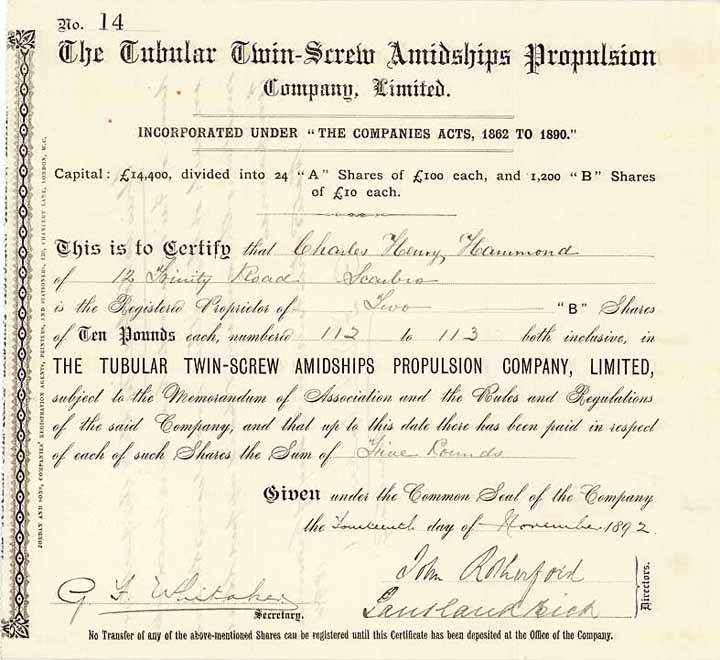 No. 14
The Tubular Twin-Screw Amidships Propulsion
Company, Limited.
INCORPORATED UNDER "THE COMPANIES ACTS, 1862 TO 1890."
Capital: £14,400, divided into 24 "A" Shares of £100 each, and 1,200 "B" Shares
of £10 each.
This is to Certify that Charles Henry Hammond
of 12 Trinity Road Scarbro
is the Registered Proprietor of Two "B" Shares
of Ten Pounds each, numbered 112 to 113 both inclusive, in
THE TUBULAR TWIN-SCREW AMIDSHIPS PROPULSION COMPANY, LIMITED,
subject to the Memorandum of Association and the Rules and Regulations
of the said Company, and that up to this date there has been paid in respect
of each of such Shares the Sum of Five Pounds
Given under the Common Seal of the Company
the Fourteenth day of November 1892.
John Rotherford
G F Whitaker
Secretary.
Directors.
No Transfer of any of the above-mentioned Shares can be registered until this Certificate has been deposited at the Office of the Company.
JORDAN AND SONS, COMPANIES' REGISTRATION AGENTS, PRINTERS, AND STATIONERS, 120, CHANCERY LANE, LONDON, W.C.